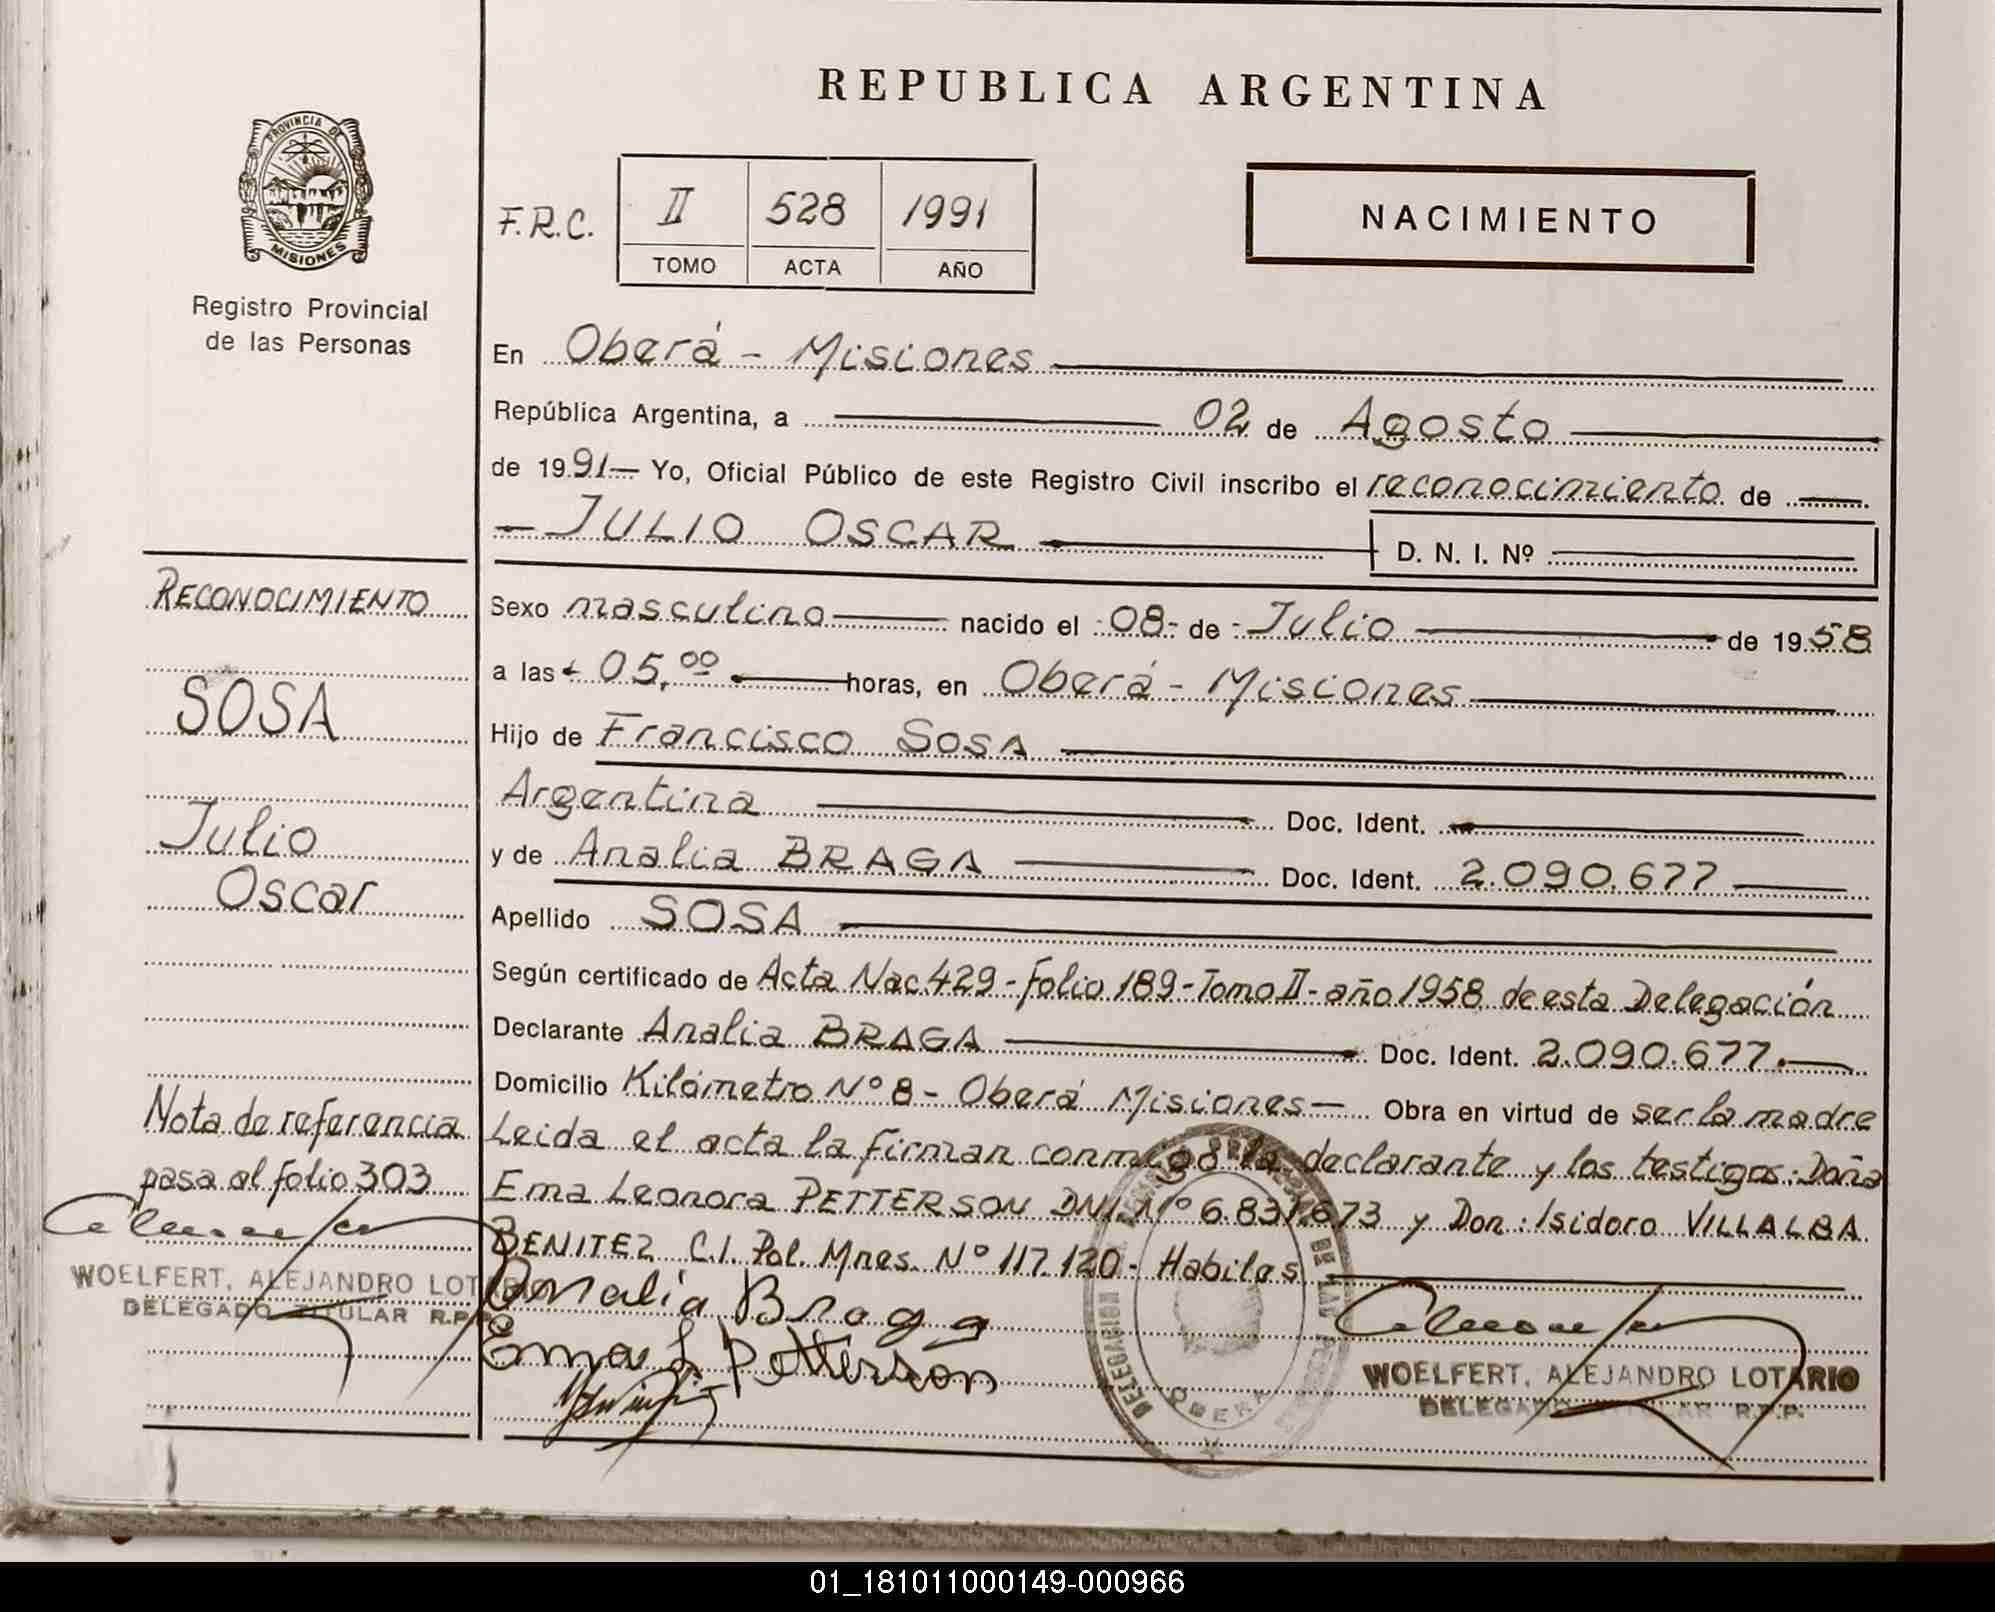 REPUBLICA ARGENTINA
PROVINCIA DE MISIONES
Registro Provincial
de las Personas
F.R.C. II 528 1991
TOMO ACTA AÑO
NACIMIENTO
En Oberá - Misiones
República Argentina, a 02 de Agosto
de 1991 Yo, Oficial Público de este Registro Civil inscribo el reconocimiento de
JULIO OSCAR D. N. I. Nº
Sexo masculino nacido el 08 de Julio de 1958
a las 05,00 horas, en Oberá - Misiones
Hijo de Francisco SOSA
Argentina Doc. Ident.
y de Analia BRAGA Doc. Ident. 2.090.677
Apellido SOSA
Según certificado de Acta Nac. 429 - folio 189 - Tomo II - año 1958 de esta Delegación
Declarante Analia BRAGA Doc. Ident. 2.090.677.
Domicilio Kilómetro Nº 8 - Oberá Misiones - Obra en virtud de ser la madre
Leida el acta la firman conmigo la declarante y los testigos: Doña
Ema Leonora PETTERSON DNI. Nº 6.831.673 y Don: Isidoro VILLALBA
BENITEZ C.I. Pol. Mnes. Nº 117.120 - Habiles
Analia Braga
Ema L Petterson
WOELFERT, ALEJANDRO LOTARIO
DELEGADO TITULAR R.P.P.
DELEGACION
OBERA
RECONOCIMIENTO
SOSA
Julio
Oscar
Nota de referencia
pasa al folio 303
WOELFERT, ALEJANDRO LOTARIO
DELEGADO TITULAR R.P.P.
01_181011000149-000966